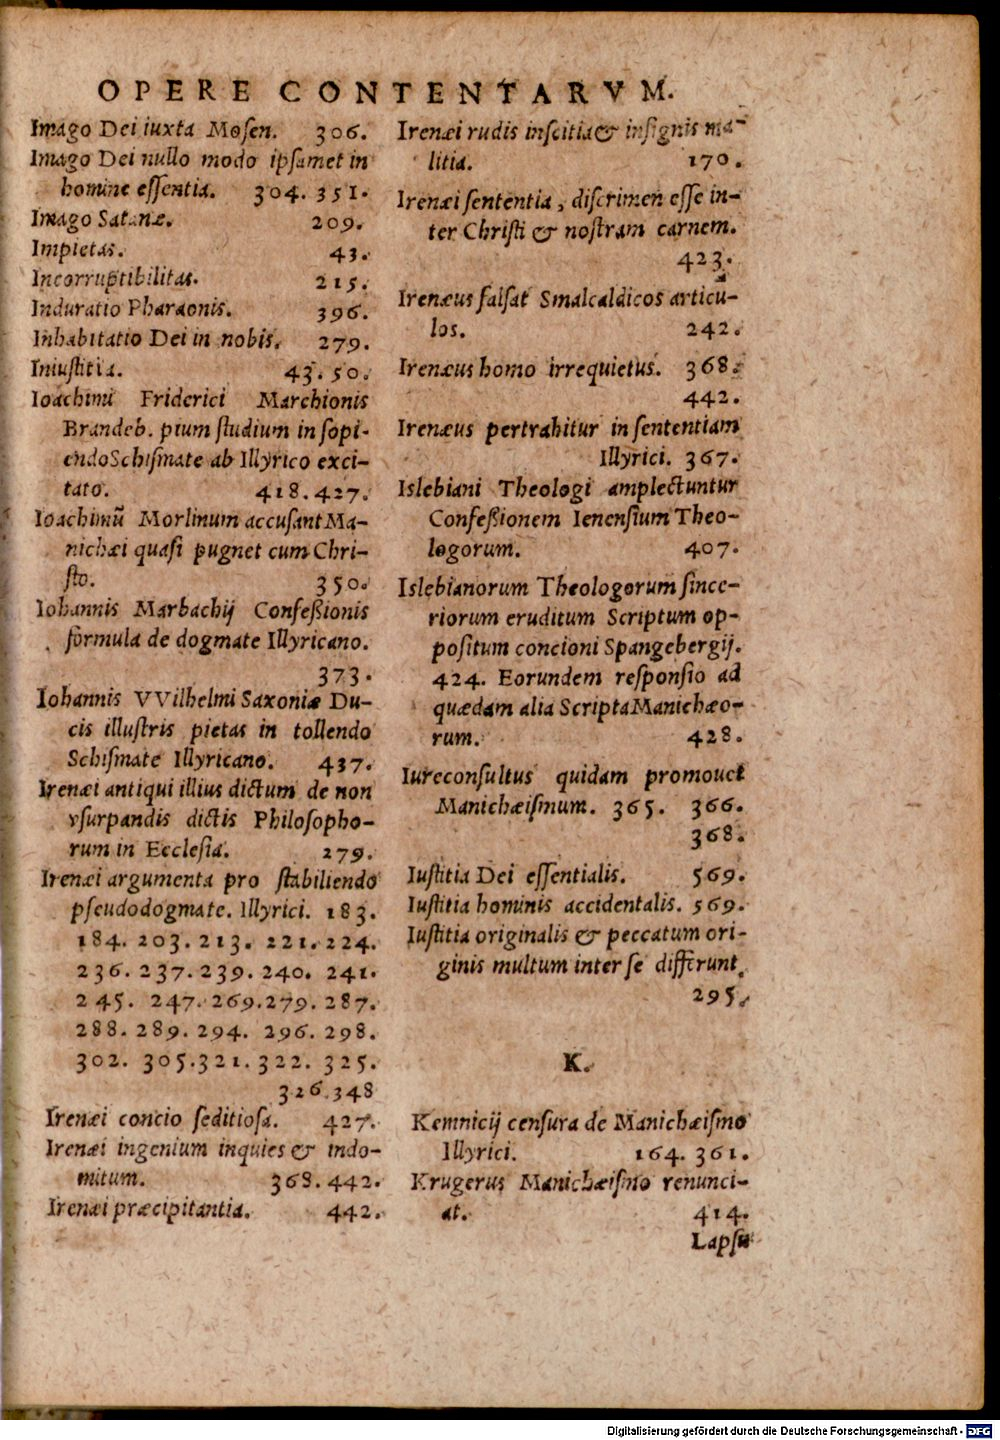 OPERE CONTENTARVM.
Imago Dei iuxta Mosen. 306.
Imago Dei nullo modo ipsamet in
homine essentia. 304. 351.
Imago Satanæ. 209.
Impietas. 43.
Incorruptibilitas. 215.
Induratio Pharaonis. 396.
Inhabitatio Dei in nobis. 279.
Iniustitia. 43. 50.
Ioachimi Friderici Marchionis
Brandeb. pium studium in sopi-
endo Schismate ab Illyrico exci-
tato. 418. 427.
Ioachimũ Morlinum accusant Ma-
nichæi quasi pugnet cum Chri-
sto. 350.
Iohannis Marbachij Confeßionis
formula de dogmate Illyricano.
373.
Iohannis VVilhelmi Saxoniæ Du-
cis illustris pietas in tollendo
Schismate Illyricano. 437.
Irenæi antiqui illius dictum de non
vsurpandis dictis Philosopho-
rum in Ecclesia. 279.
Irenæi argumenta pro stabiliendo
pseudodogmate. Illyrici. 183.
184. 203. 213. 221. 224.
236. 237. 239. 240. 241.
245. 247. 269. 279. 287.
288. 289. 294. 296. 298.
302. 305. 321. 322. 325.
326. 348
Irenæi concio seditiosa. 427.
Irenæi ingenium inquies & indo-
mitum. 368. 442.
Irenæi præcipitantia. 442.
Irenæi rudis inscitia & insignis ma-
litia. 170.
Irenæi sententia, discrimen esse in-
ter Christi & nostram carnem.
423.
Irenæus falsat Smalcaldicos articu-
los. 242.
Irenæus homo irrequietus. 368.
442.
Irenæus pertrahitur in sententiam
Illyrici. 367.
Islebiani Theologi amplectuntur
Confeßionem Ienensium Theo-
logorum. 407.
Islebianorum Theologorum since-
riorum eruditum Scriptum op-
positum concioni Spangebergij.
424. Eorundem responsio ad
quædam alia Scripta Manichæo-
rum. 428.
Iureconsultus quidam promouet
Manichæismum. 365. 366.
368.
Iustitia Dei essentialis. 569.
Iustitia hominis accidentalis. 569.
Iustitia originalis & peccatum ori-
ginis multum inter se differunt.
295.
K.
Kemnicij censura de Manichæismo
Illyrici. 164. 361.
Krugerus Manichæismo renunci-
at. 414.
Lapsu
Digitalisierung gefördert durch die Deutsche Forschungsgemeinschaft - DFG